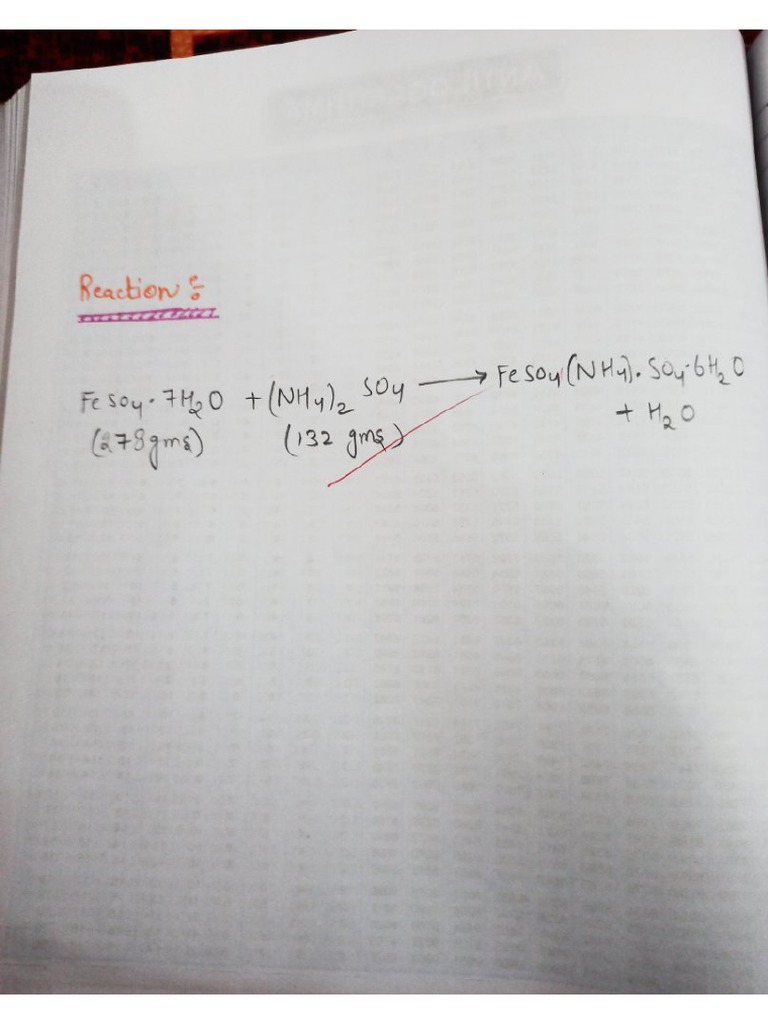 Reaction :-
FeSO4 · 7H2O + (NH4)2 SO4 → FeSO4(NH4)·SO4·6H2O
+ H2O
(278gms) (132 gms)